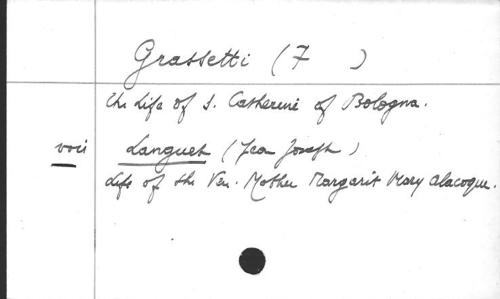 Grassetti (F )
The Life of S. Catherine of Bologna.
voir Languet (Jean Joseph)
Life of the Ven. Mother Margarit Mary Alacoque.